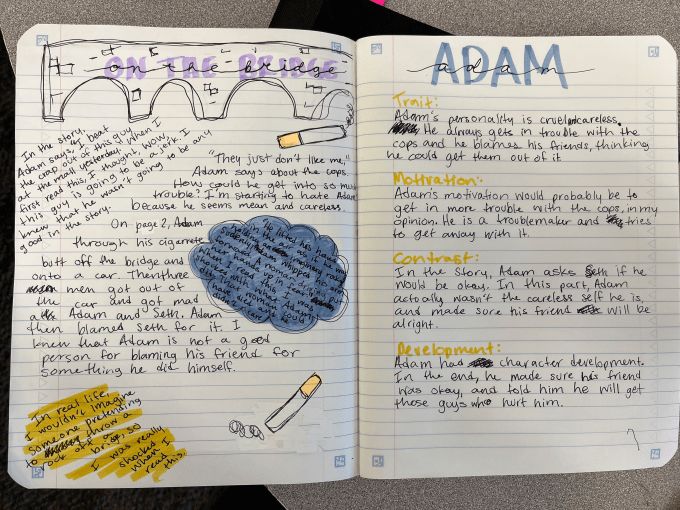 ON THE BRIDGE
on the bridge
In the story,
Adam says, "I beat
the crap out of this guy
at the mall yesterday." When I
first read this, I thought, wow,
this guy is going to be a jerk. I
knew that he wasn't going to be any
good in the story.
"They just don't like me,"
Adam says about the cops.
How could he get into so much
trouble? I'm starting to hate Adam
because he seems mean and careless.
On page 2, Adam
through his cigarrete
butt off the bridge and
onto a car. Then three
men got out of
the car and got mad
at Adam and Seth. Adam
then blamed Seth for it. I
knew that Adam is not a good
person for blaming his friend for
something he did himself.
In real life,
I wouldn't imagine
someone pretending
to throw a
rock off a
bridge, so
I was really
shocked when I
read this.
ADAM
adam
Trait:
Adam's personality is cruel careless.
He always gets in trouble with the
cops and he blames his friends, thinking
he could get them out of it.
Motivation:
Adam's motivation would probably be to
get in more trouble with the cops, in my
opinion. He is a troublemaker and tries
to get away with it.
Contrast:
In the Story, Adam asks Seth if he
would be okay. In this part, Adam
actually wasn't the careless self he is,
and made sure his friend will be
alright.
Development:
Adam had character development.
In the end, he made sure his friend
was okay, and told him he will get
those guys who hurt him.